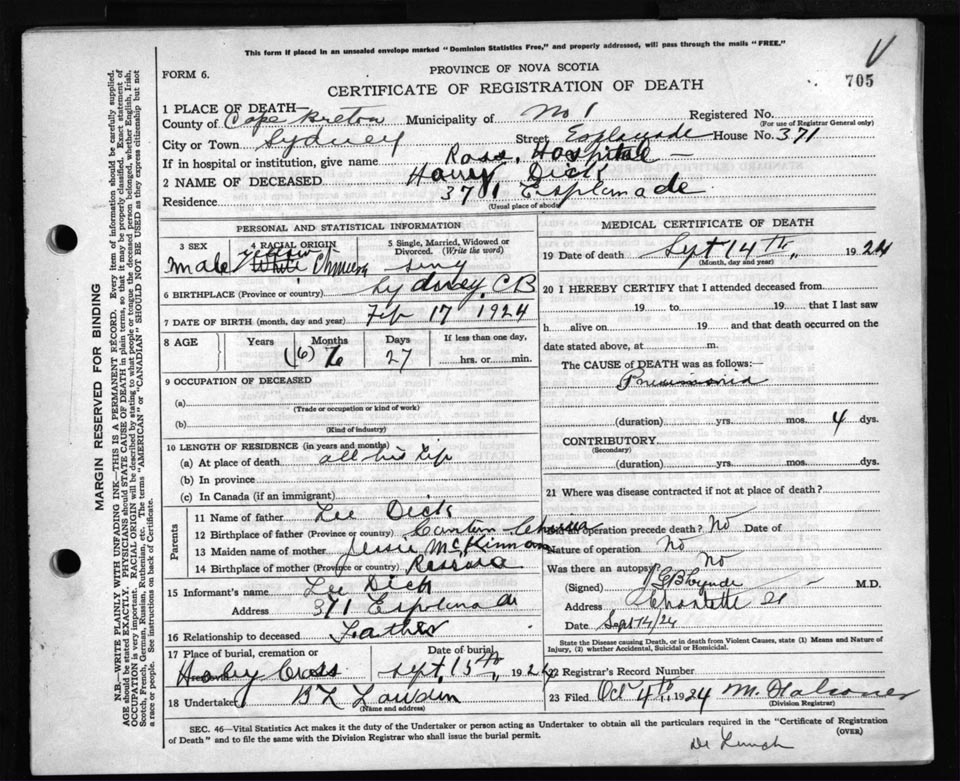 This form if placed in an unsealed envelope marked "Dominion Statistics Free," and properly addressed, will pass through the mails "FREE."
V
FORM 6.
PROVINCE OF NOVA SCOTIA
705
CERTIFICATE OF REGISTRATION OF DEATH
1 PLACE OF DEATH—
County of Cape Breton Municipality of No 1 Registered No.
(For use of Registrar General only)
City or Town Sydney Street Esplanade House No. 371
If in hospital or institution, give name Ross. Hospital —
2 NAME OF DECEASED Harry Dick
Residence 371 Esplanade
(Usual place of abode)
PERSONAL AND STATISTICAL INFORMATION
3 SEX 4 RACIAL ORIGIN 5 Single, Married, Widowed or Divorced. (Write the word)
male yellow White Chinese sing
6 BIRTHPLACE (Province or country) Sydney, CB
7 DATE OF BIRTH (month, day and year) Feb 17 1924
8 AGE Years Months Days If less than one day,
(6) 7 6 27 hrs. or min.
9 OCCUPATION OF DECEASED
(a)
(Trade or occupation or kind of work)
(b)
(Kind of industry)
10 LENGTH OF RESIDENCE (in years and months)
(a) At place of death all his life
(b) In province
(c) In Canada (if an immigrant)
Parents
11 Name of father Lee Dick
12 Birthplace of father (Province or country) Canton China
13 Maiden name of mother Jessie McKinnon
14 Birthplace of mother (Province or country)
15 Informant's name Lee Dick
Address 371 Esplanade
16 Relationship to deceased Father
17 Place of burial, cremation or Date of burial
Holy Cross Sept. 15th 1924
18 Undertaker B L
(Name and address)
MEDICAL CERTIFICATE OF DEATH
19 Date of death Sept 14th, 1924
(Month, day and year)
20 I HEREBY CERTIFY that I attended deceased from
19 to 19 that I last saw
h alive on 19 and that death occurred on
date stated above, at m.
The CAUSE of DEATH was as follows:
Pneumonia
(duration) yrs. mos. 4 dys.
CONTRIBUTORY
(Secondary)
(duration) yrs. mos. dys.
21 Where was disease contracted if not at place of death?
Did an operation precede death? No Date of
Nature of operation No
Was there an autopsy? No
(Signed) M.D.
Address Charlotte St
Date Sept 14/24
State the Disease causing Death, or in death from Violent Causes, state (1) Means and Nature of Injury, (2) whether Accidental, Suicidal or Homicidal.
22 Registrar's Record Number
23 Filed Oct 4th 1924 M.
(Division Registrar)
SEC. 46—Vital Statistics Act makes it the duty of the Undertaker or person acting as Undertaker to obtain all the particulars required in the "Certificate of Registration
of Death" and to file the same with the Division Registrar who shall issue the burial permit.
(OVER)
MARGIN RESERVED FOR BINDING
N.B.—WRITE PLAINLY WITH UNFADING INK—THIS IS A PERMANENT RECORD. Every item of information should be carefully supplied.
AGE should be stated EXACTLY. PHYSICIANS should STATE CAUSE OF DEATH in plain terms, so that it may be properly classified. Exact statement of
OCCUPATION is very important. RACIAL ORIGIN will be described by stating to what people or tongue the deceased person belonged, whether English, Irish,
Scotch, French, German, Russian, Ruthenian, etc. The terms "AMERICAN" or "CANADIAN" SHOULD NOT BE USED as they express citizenship but not
a race or people. See instructions on back of Certificate.